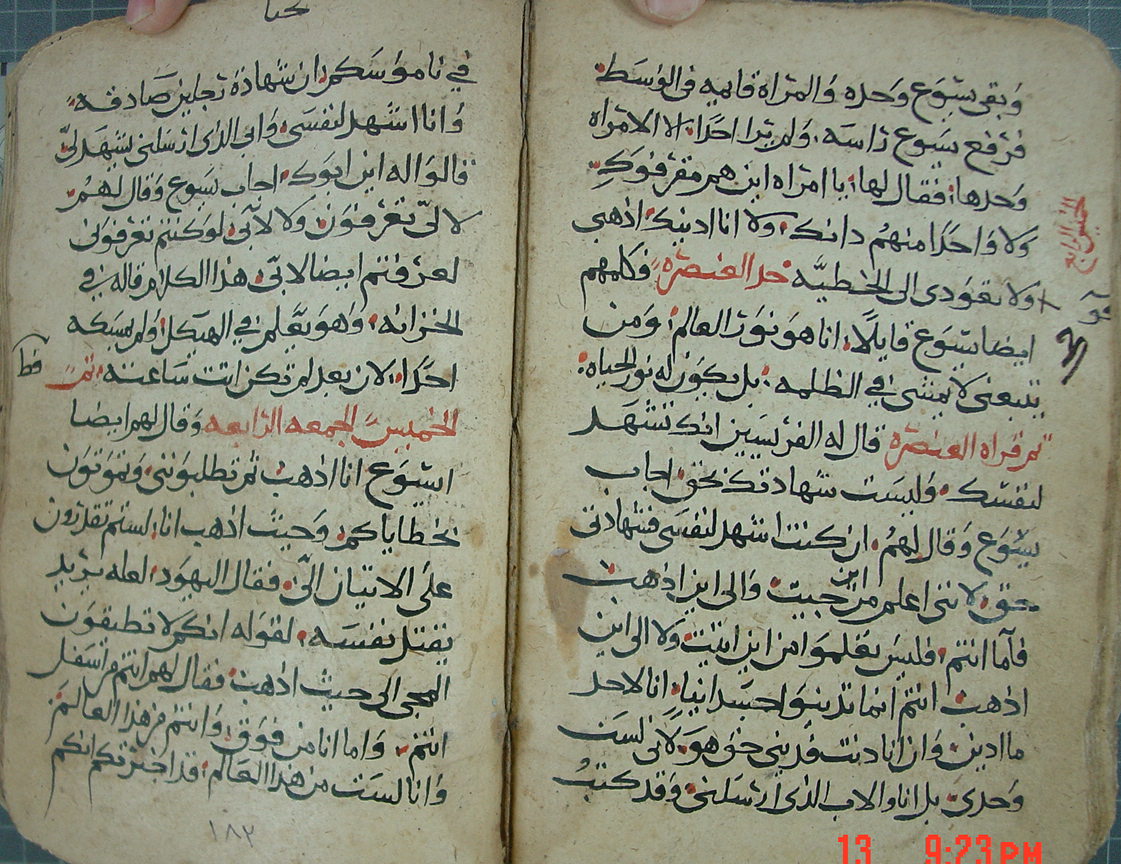 وبقى يسوع وحده والمراه قايمه فى الوسط
فرفع يسوع راسه ولم يرا احدا الا الامراه
وحدها فقال لها يا امراه اين هم مقرفوك
ولا واحدا منهم دانك ولا انا ادينك اذهبى
ولا تعودى الى الخطيه حد العنصره وكلمهم
ايضا يسوع قايلا انا هو نور العالم ومن
يتبعنى لا يمشى في الظلمه بل يكون له نور الحياه
تم قراه العنصره قال له الفريسيين انك تشهد
لنفسك وليست شهادتك بحق اجاب
يسوع وقال لهم ان كنت اشهد لنفسى فشهادتى
حق لاننى اعلم من اين جيت والى اين اذهب
فاما انتم فليس تعلموا من اين اتيت ولا الى اين
اذهب انتم انما تدينوا جسدانيا انا لاحد
ما ادين وان انا دنت فدينى حق هو لانى لست
وحدى بل انا والاب الذى ارسلنى وقد كتب
في ناموسكم ان شهادة رجلين صادقه
وانا اشهد لنفسى وابى الذى ارسلنى يشهد لى
قالوا له اين ابوك اجاب يسوع وقال لهم
لا لى تعرفون ولا لابى لو كنتم تعرفونى
لعرفتم ايضا لابى هذا الكلام قاله في
الخزانه وهو يعلم في الهيكل ولم يمسكه
احدا لان بعد لم تكن اتت ساعته تم
الخميس الجمعه الرابعه وقال لهم ايضا
ايسوع انا اذهب ثم تطلبوننى وتموتون
بخطاياكم وحيث اذهب انا لستم تقدرون
على الاتيان الى فقال اليهود لعله يريد
يقتل نفسه لقوله انكم لا تطيقون
المجى الى حيث اذهب فقال لهم انتم من اسفل
انتم واما انا من فوق وانتم من هذا العالم
وانا لست من هذا العالم قد اخبرتكم انكم
١٨٢
13 9:23 PM